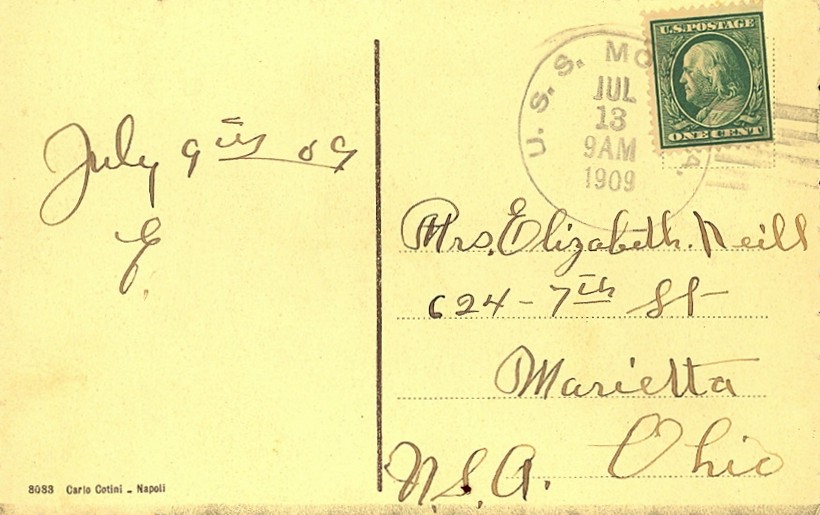 U.S. POSTAGE
ONE CENT
U. S. S. MO
JUL
13
9AM
1909
July 9th 09
E.
Mrs. Elizabeth. Neill
624 - 7th St
Marietta
Ohio
U.S.A.
8033 Carlo Cotini - Napoli